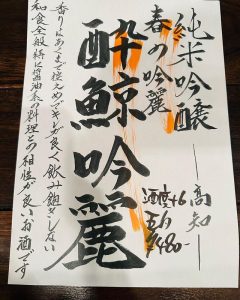 純米吟醸 ―高知―
春の吟麗
酔鯨吟麗
酒度+6
五勺
¥480-
香りはあくまで控えめでキレが良く飲み飽きしない
和食全般特に醤油系の料理との相性が良いお酒です